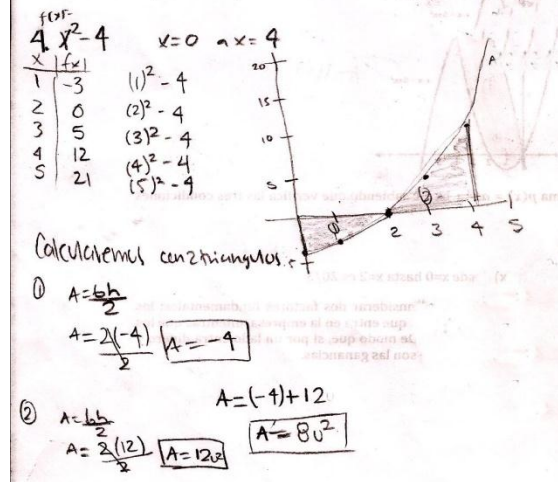 f(x)=
4. x²-4 x=0 a x=4
x | f(x)
1 | -3 (1)² - 4
2 | 0 (2)² - 4
3 | 5 (3)² - 4
4 | 12 (4)² - 4
5 | 21 (5)² - 4
20
15
10
5
A
① ②
2 3 4 5
Calcularemos con 2 triangulos:
① A=bh/2
A=2(-4)/2 A=-4
A=(-4)+12
A=8u²
② A=bh/2
A=2(12)/2 A=12u²